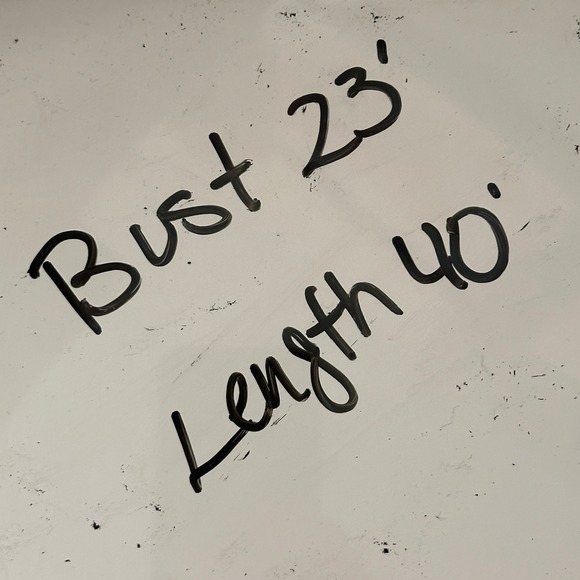 Bust 23'
Length 40'